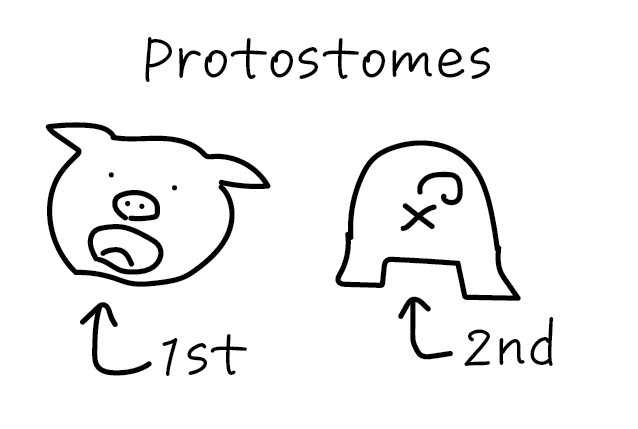 Protostomes
1st
2nd